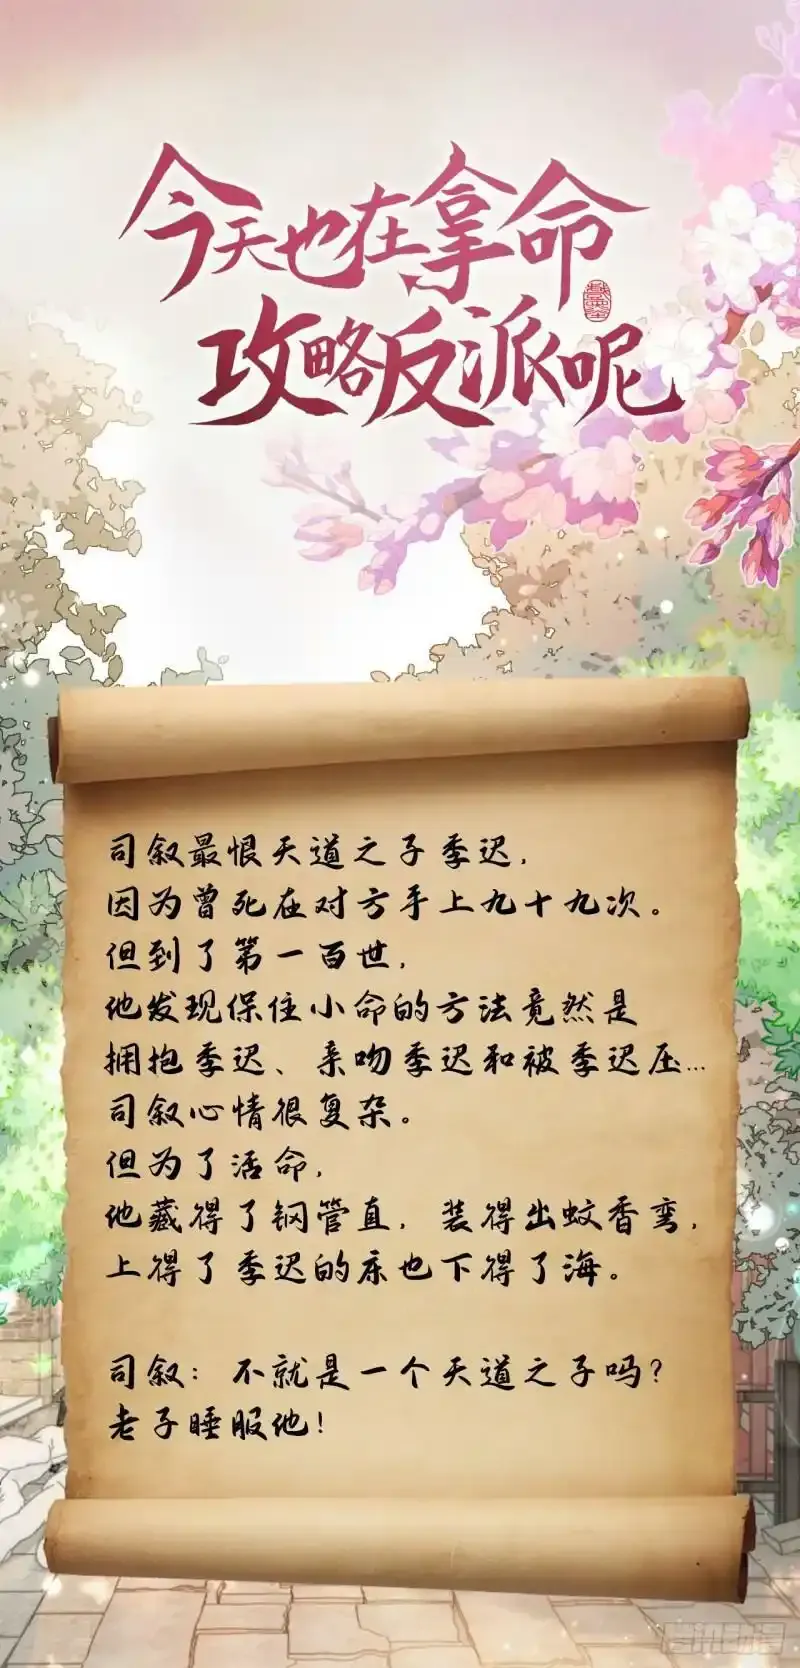 今天也在拿命
攻略反派呢
司叙最恨天道之子季迟，
因为曾死在对方手上九十九次。
但到了第一百世，
他发现保住小命的方法竟然是
拥抱季迟、亲吻季迟和被季迟压...
司叙心情很复杂。
但为了活命，
他藏得了钢管直，装得出蚊香弯，
上得了季迟的床也下得了海。
司叙：不就是一个天道之子吗？
老子睡服他！